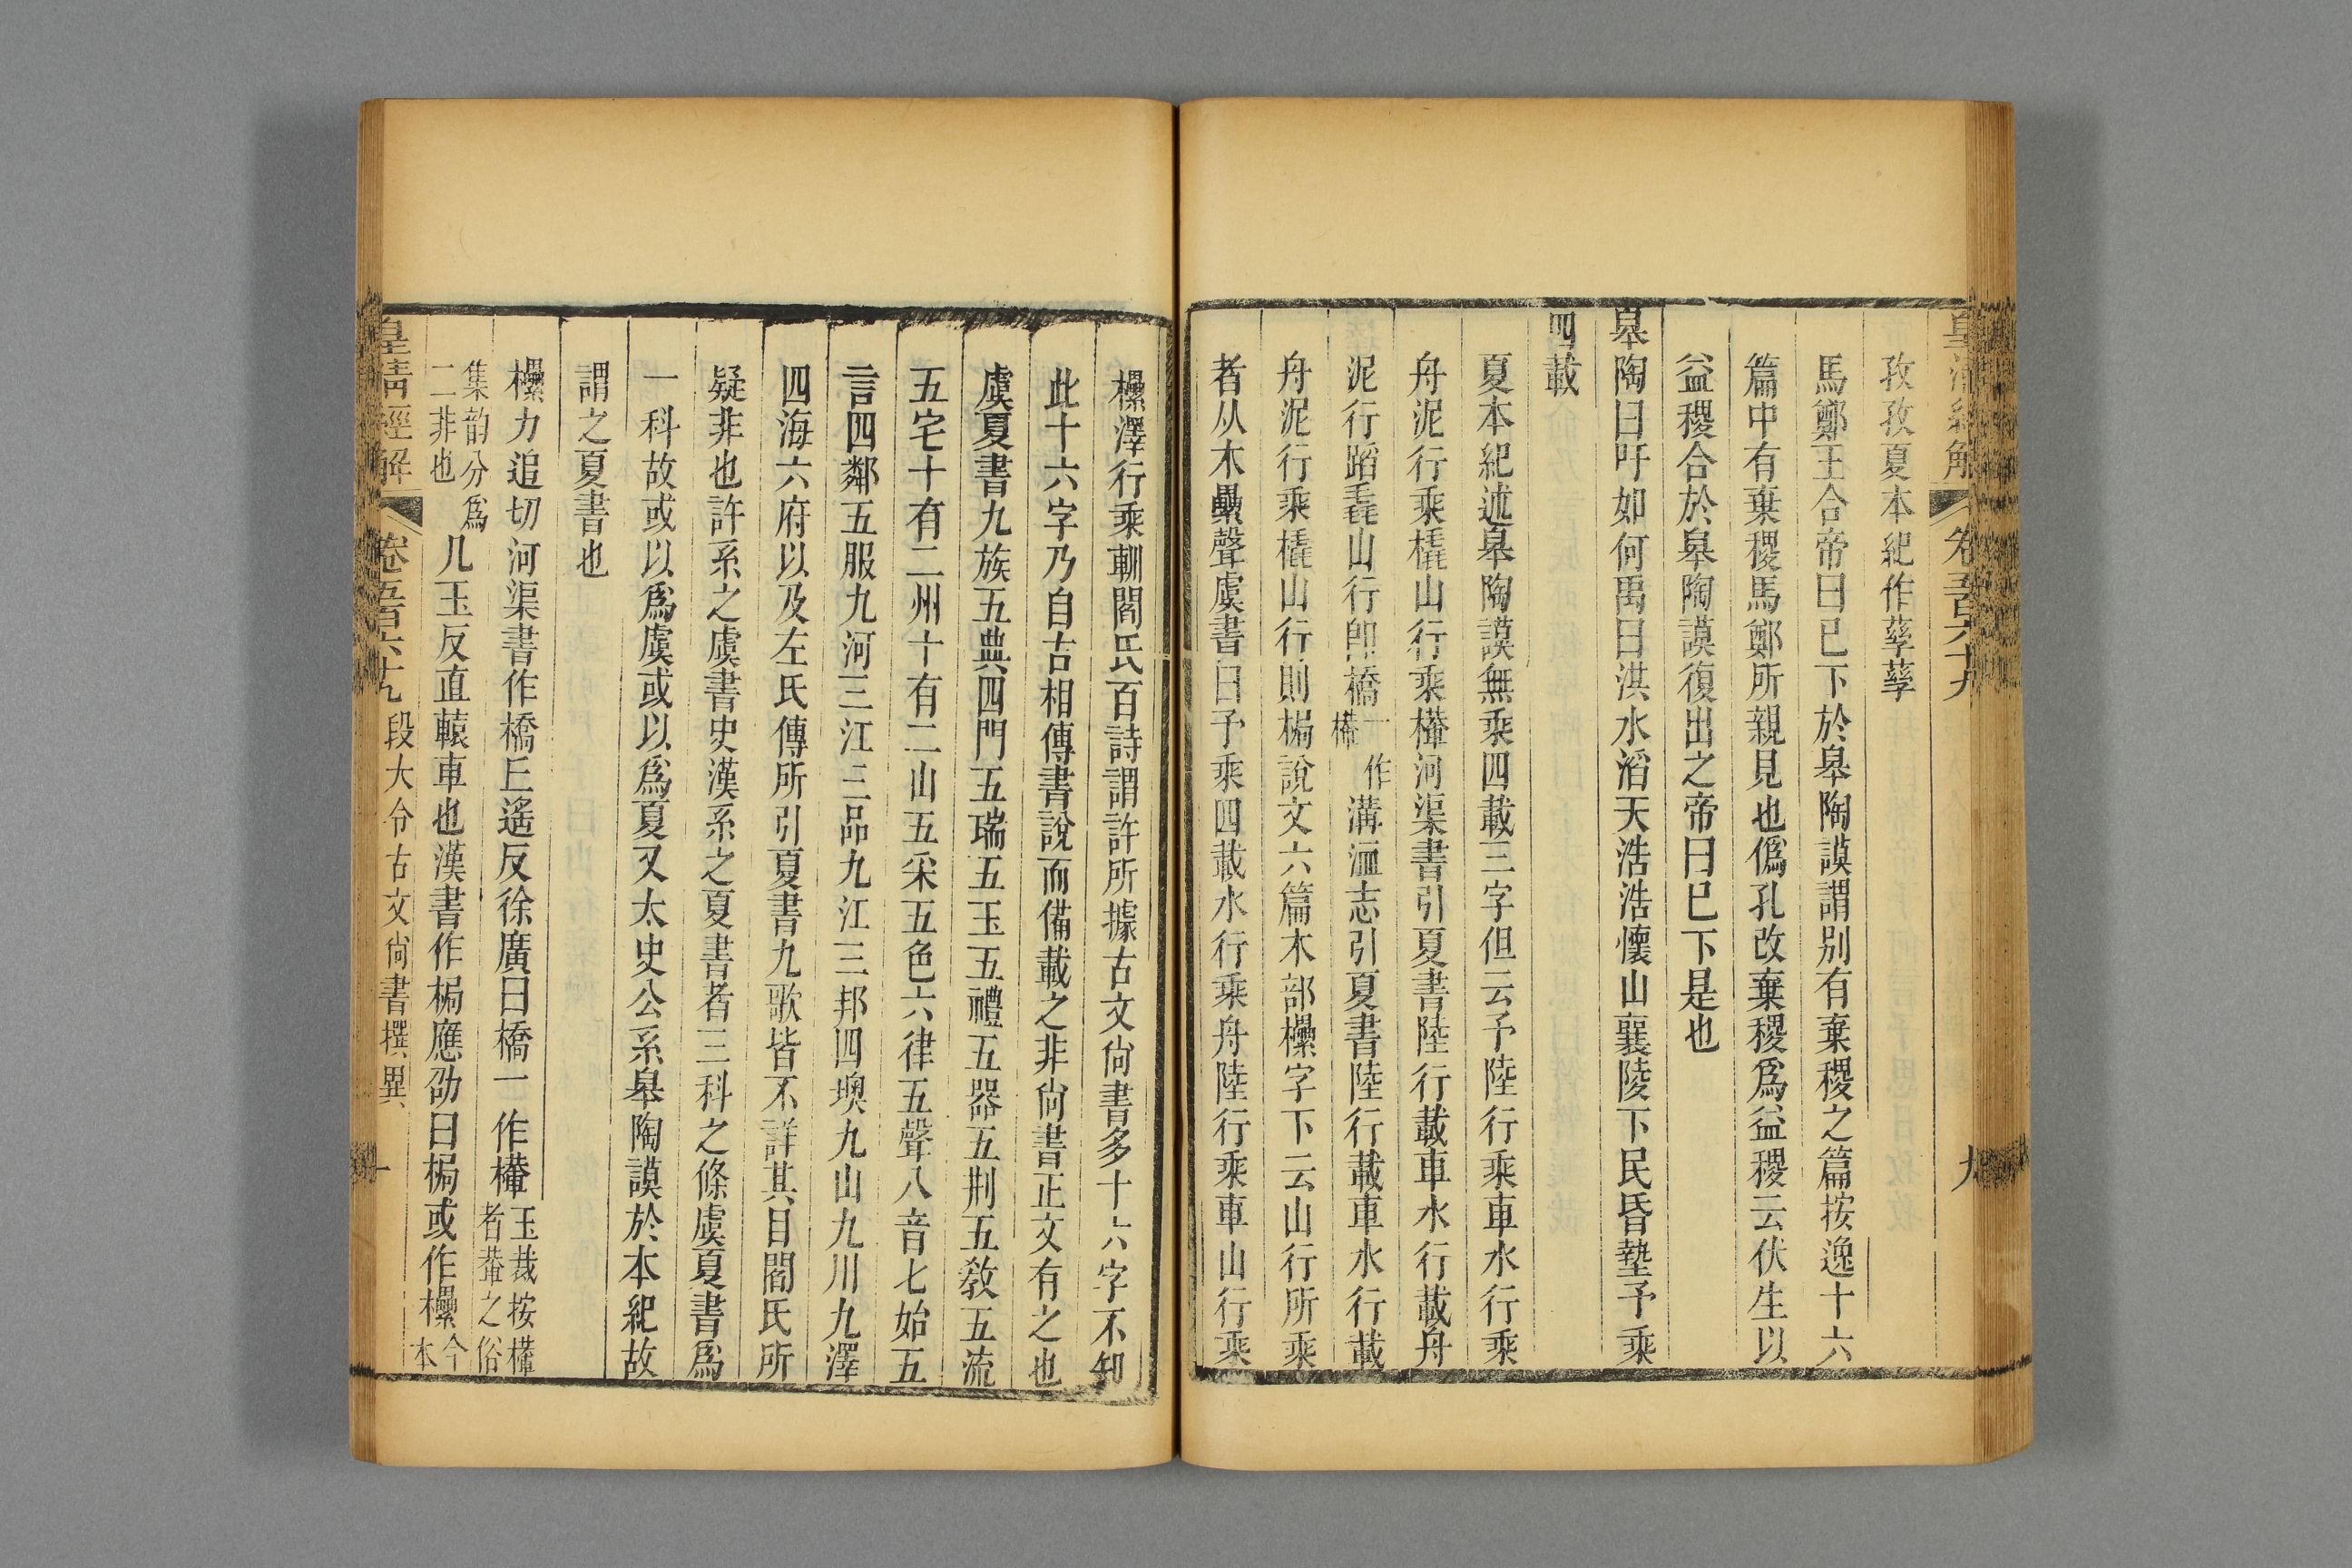 皇清經解
卷五百六十九
九
孜孜夏本紀作孳孳
馬鄭王合帝曰已下於皋陶謨謂别有棄稷之篇按逸十六
篇中有棄稷馬鄭所親見也僞孔改棄稷爲益稷云伏生以
益稷合於皋陶謨復出之帝曰已下是也
皋陶曰吁如何禹曰洪水滔天浩浩懷山襄陵下民昏墊予乘
四載
夏本紀述皋陶謨無乘四載三字但云予陸行乘車水行乘
舟泥行乘橇山行乘檋河渠書引夏書陸行載車水行載舟
泥行蹈毳山行卽橋一作檋溝洫志引夏書陸行載車水行載
舟泥行乘橇山行則梮說文六篇木部欙字下云山行所乘
者从木纍聲虞書曰予乘四載水行乘舟陸行乘車山行乘
欙澤行乘輴閻氏百詩謂許所據古文尙書多十六字不知
此十六字乃自古相傳書說而備載之非尙書正文有之也
虞夏書九族五典四門五瑞五玉五禮五器五荆五敎五流
五宅十有二州十有二山五采五色六律五聲八音七始五
言四鄰五服九河三江三品九江三邦四墺九山九川九澤
四海六府以及左氏傳所引夏書九歌皆不詳其目閻氏所
疑非也許系之虞書史漢系之夏書者三科之條虞夏書爲
一科故或以爲虞或以爲夏又太史公系皋陶謨於本紀故
謂之夏書也
欙力追切河渠書作橋丘遙反徐廣曰橋一作檋玉裁按檋者輂之俗
集韵分爲二非也几玉反直轅車也漢書作梮應劭曰梮或作欙今本
皇清經解
卷五百六十九
段大令古文尙書撰異